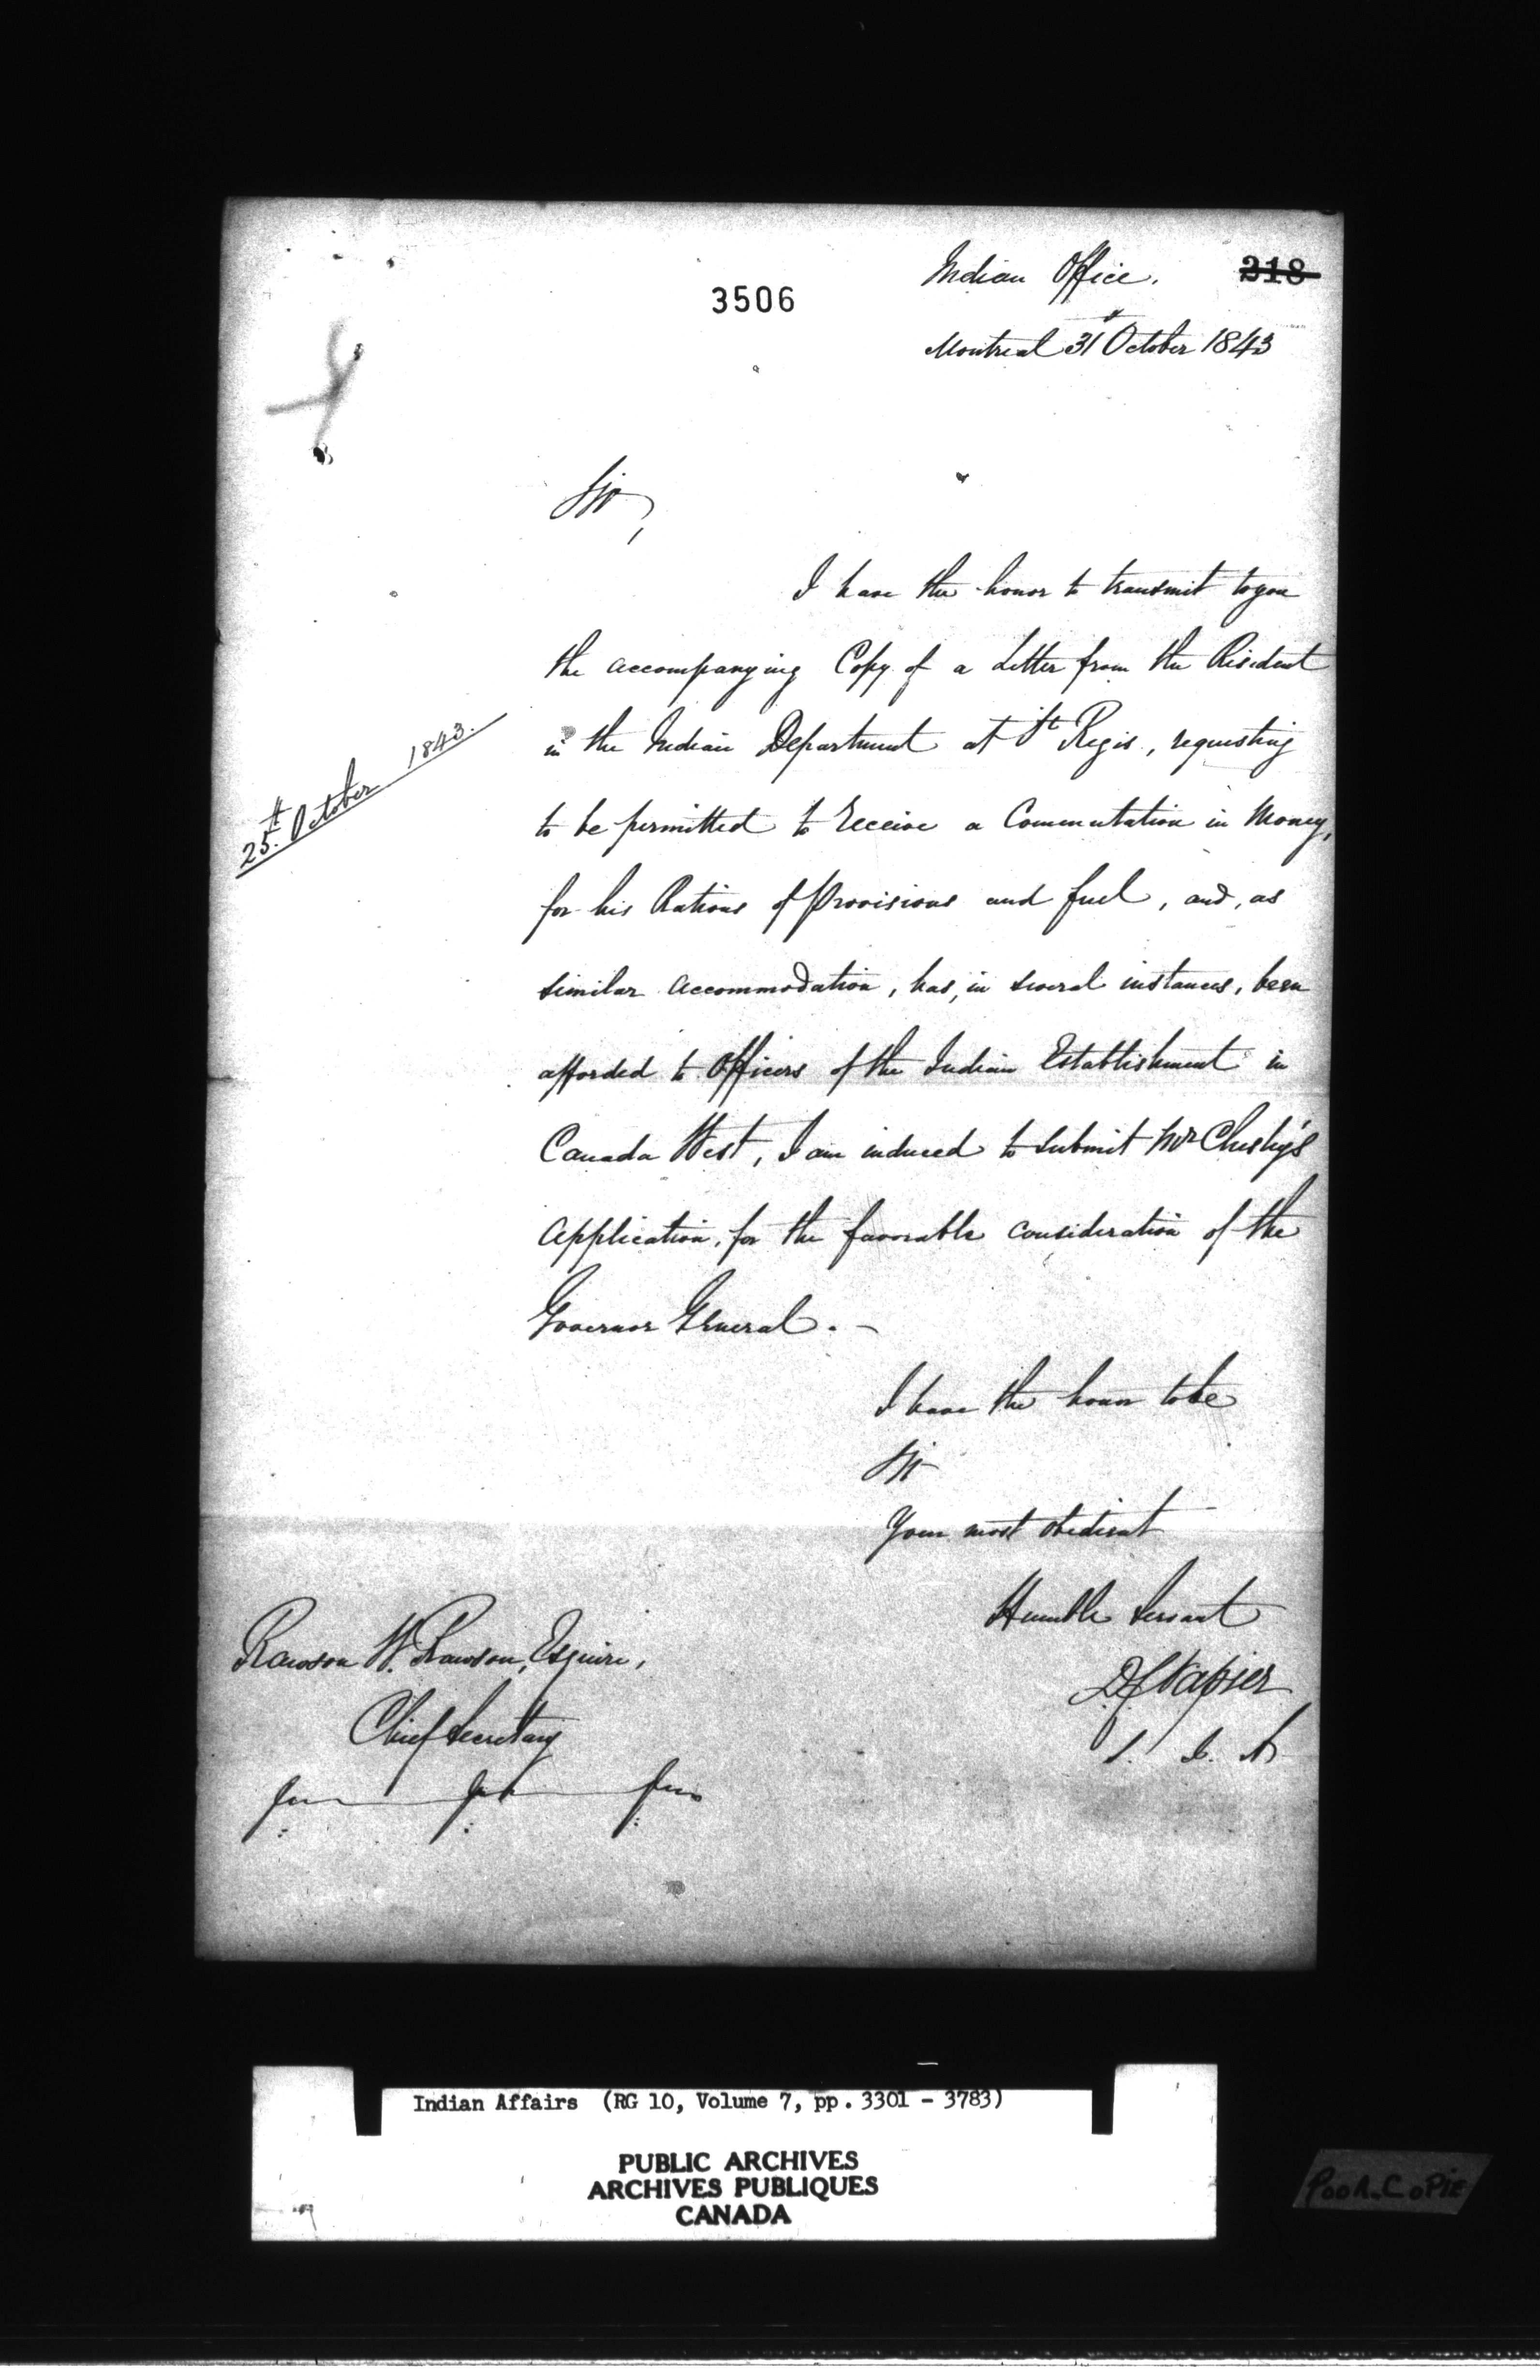 Indian Office.
218
3506
Montreal 31st October 1843
Sir,
I have the honor to transmit to you
the accompanying Copy of a Letter from the Resident
25th October 1843.
in the Indian Department at St Regis, requesting
to be permitted to receive a Commutation in Money,
for his Rations of Provisions and fuel, and, as
similar accommodation, has, in several instances, been
afforded to Officers of the Indian Establishment in
Canada West, I am induced to submit Mr Chesley's
Application, for the favorable consideration of the
Governor General. -
I have the honor to be
Sir
Your most obedient
Humble Servant
DC Napier
S. I. A
Rawson W. Rawson, Esquire,
Chief Secretary
Indian Affairs (RG 10, Volume 7, pp. 3301 - 3783)
PUBLIC ARCHIVES
ARCHIVES PUBLIQUES
CANADA
POOR COPIE